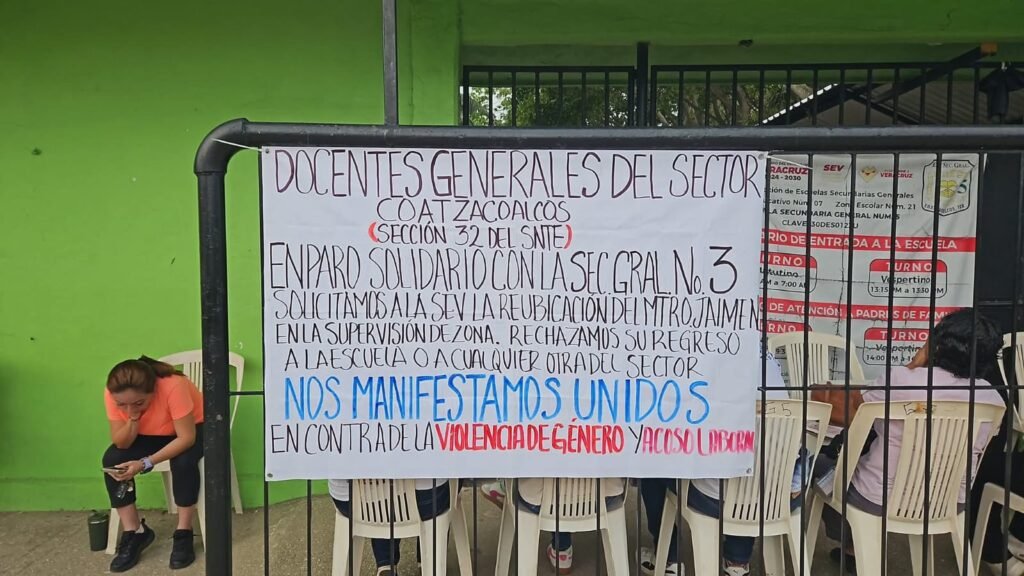 DOCENTES GENERALES DEL SECTOR
COATZACOALCOS
(SECCIÓN 32 DEL SNTE)
EN PARO SOLIDARIO CON LA SEC. GRAL. No. 3
SOLICITAMOS A LA SEV LA REUBICACIÓN DEL MTRO JAIME N
EN LA SUPERVISIÓN DE ZONA. RECHAZAMOS SU REGRESO
A LA ESCUELA O A CUALQUIER OTRA DEL SECTOR
NOS MANIFESTAMOS UNIDOS
EN CONTRA DE LA VIOLENCIA DE GÉNERO Y ACOSO LABORAL
VERACRUZ SEV VERACRUZ
2024 - 2030
de Escuelas Secundarias Generales
Núm. 07 Zona Escolar Núm. 21
SECUNDARIA GENERAL NUM
CLAVE
DE ENTRADA A LA ESCUELA
TURNO TURNO
Vespertino
7:00 AM 13:15 PM a 13:30 PM
DE ATENCIÓN A PADRES DE
TURNO TURNO
Vespertino
14:00 PM